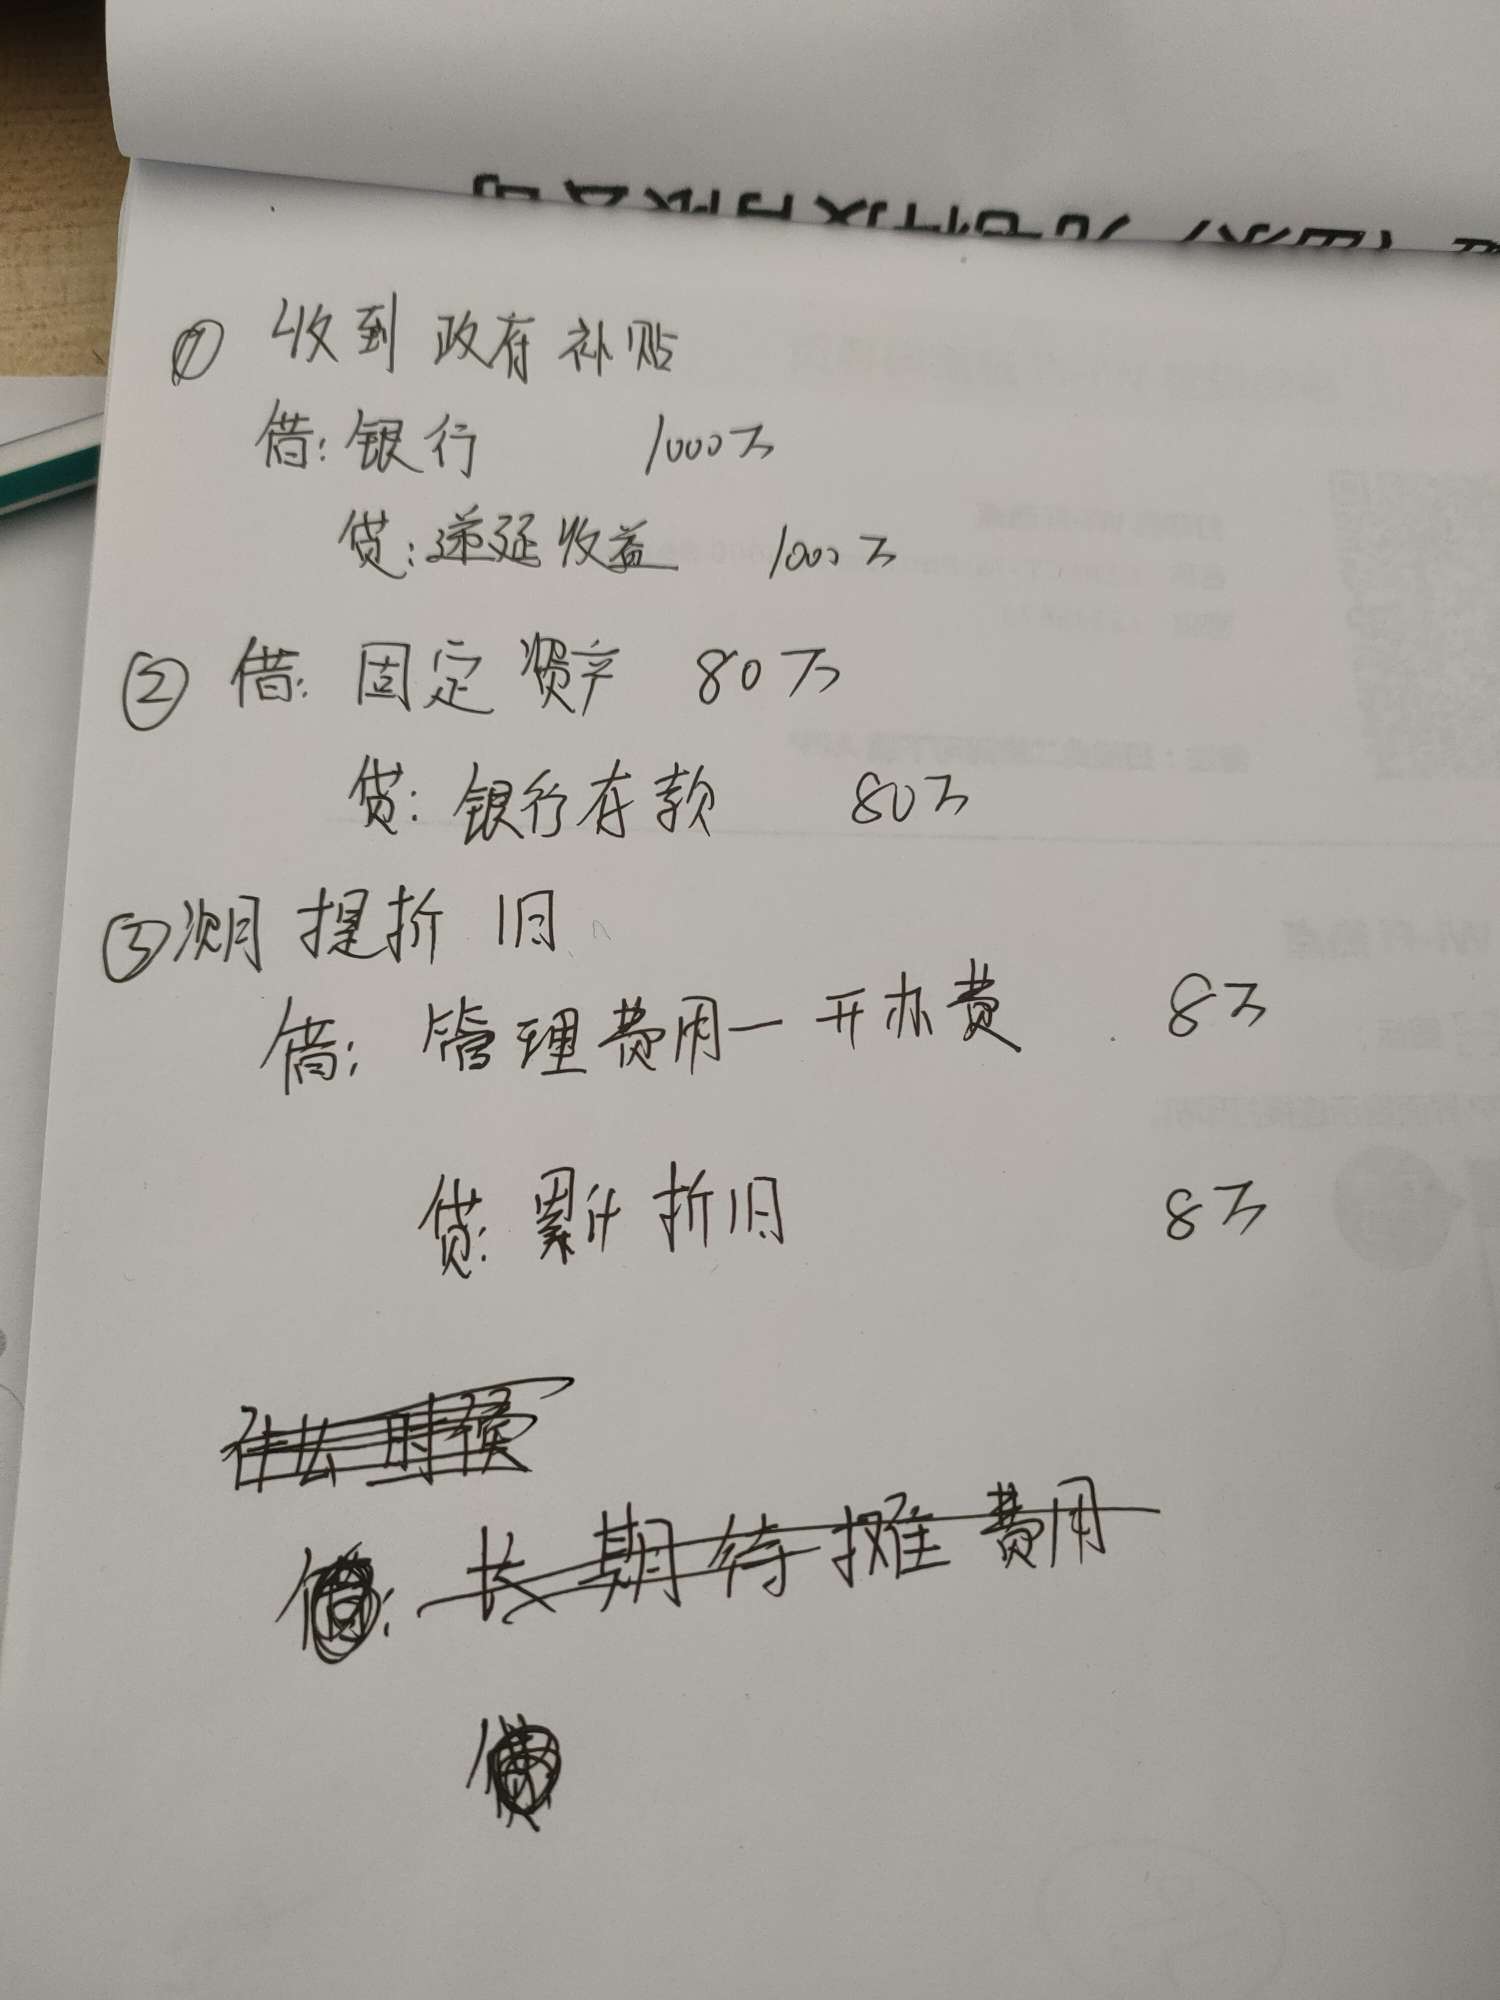 ① 收到政府补贴
借:银行 1000万
贷:递延收益 1000万
② 借:固定资产 80万
贷:银行存款 80万
③次月提折旧
借:管理费用一开办费 8万
贷:累计折旧 8万
什么时候
借:长期待摊费用
贷